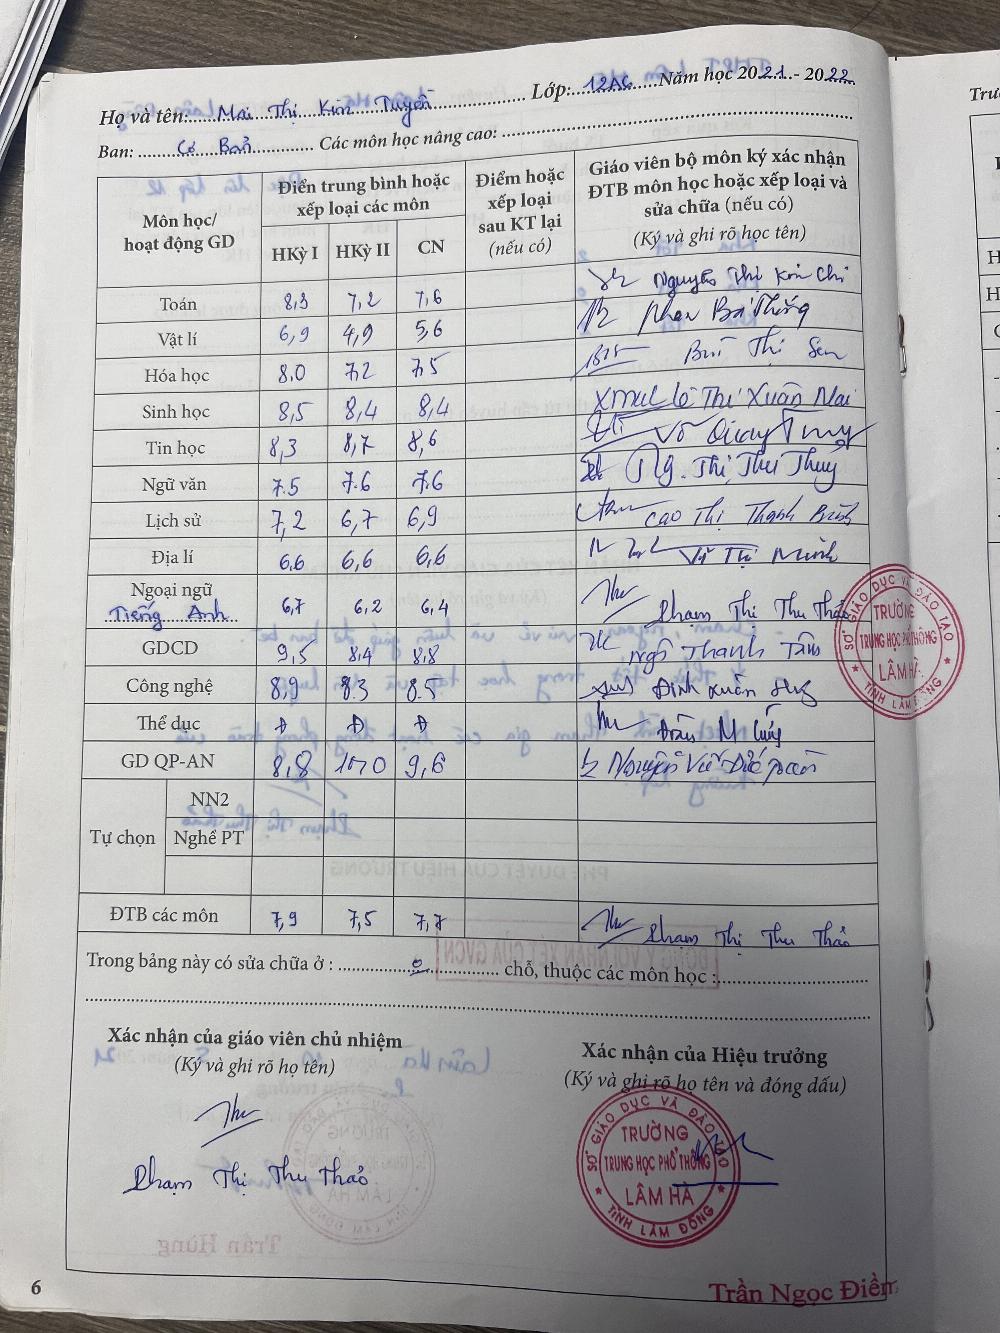 Họ và tên: Mai Thị Kim Tuyền Lớp: 12A6 Năm học 2021 - 2022
Ban: Cơ Bản Các môn học nâng cao:
Môn học/ hoạt động GD
Điểm trung bình hoặc xếp loại các môn
HKỳ I HKỳ II CN
Điểm hoặc xếp loại sau KT lại (nếu có)
Giáo viên bộ môn ký xác nhận ĐTB môn học hoặc xếp loại và sửa chữa (nếu có)
(Ký và ghi rõ học tên)
Toán 8,3 7,2 7,6 Nguyễn Thị Kim Chi
Vật lí 6,9 4,9 5,6 Phan Bá Thắng
Hóa học 8.0 7,2 7,5 Bùi Thị Sen
Sinh học 8,5 8,4 8,4 Lê Thị Xuân Mai
Tin học 8,3 8,7 8,6 Võ Quang
Ngữ văn 7.5 7.6 7.6 Ng. Thị Thu Thuỷ
Lịch sử 7,2 6,7 6,9 Cao Thị Thanh Bình
Địa lí 6,6 6,6 6,6 Thị Minh
Ngoại ngữ
Tiếng Anh 6,7 6,2 6,4 Phạm Thị Thu Thảo
GDCD 9,5 8,4 8,8 Ngô Thanh Tâm
Công nghệ 8,9 8.3 8.5 Đinh Xuân
Thể dục Đ Đ Đ Trần
GD QP-AN 8,8 10,0 9,6 Nguyễn Viết Đức
Tự chọn
NN2
Nghề PT
ĐTB các môn 7,9 7,5 7,7 Phạm Thị Thu Thảo
Trong bảng này có sửa chữa ở : 0 chỗ, thuộc các môn học :
Xác nhận của giáo viên chủ nhiệm
(Ký và ghi rõ họ tên)
Phạm Thị Thu Thảo
Xác nhận của Hiệu trưởng
(Ký và ghi rõ họ tên và đóng dấu)
SỞ GIÁO DỤC VÀ ĐÀO TẠO
TRƯỜNG
TRUNG HỌC PHỔ THÔNG
LÂM HÀ
TỈNH LÂM ĐỒNG
SỞ GIÁO DỤC VÀ ĐÀO TẠO
TRƯỜNG
TRUNG HỌC PHỔ THÔNG
LÂM HÀ
TỈNH LÂM ĐỒNG
Trần Ngọc Điềm
6